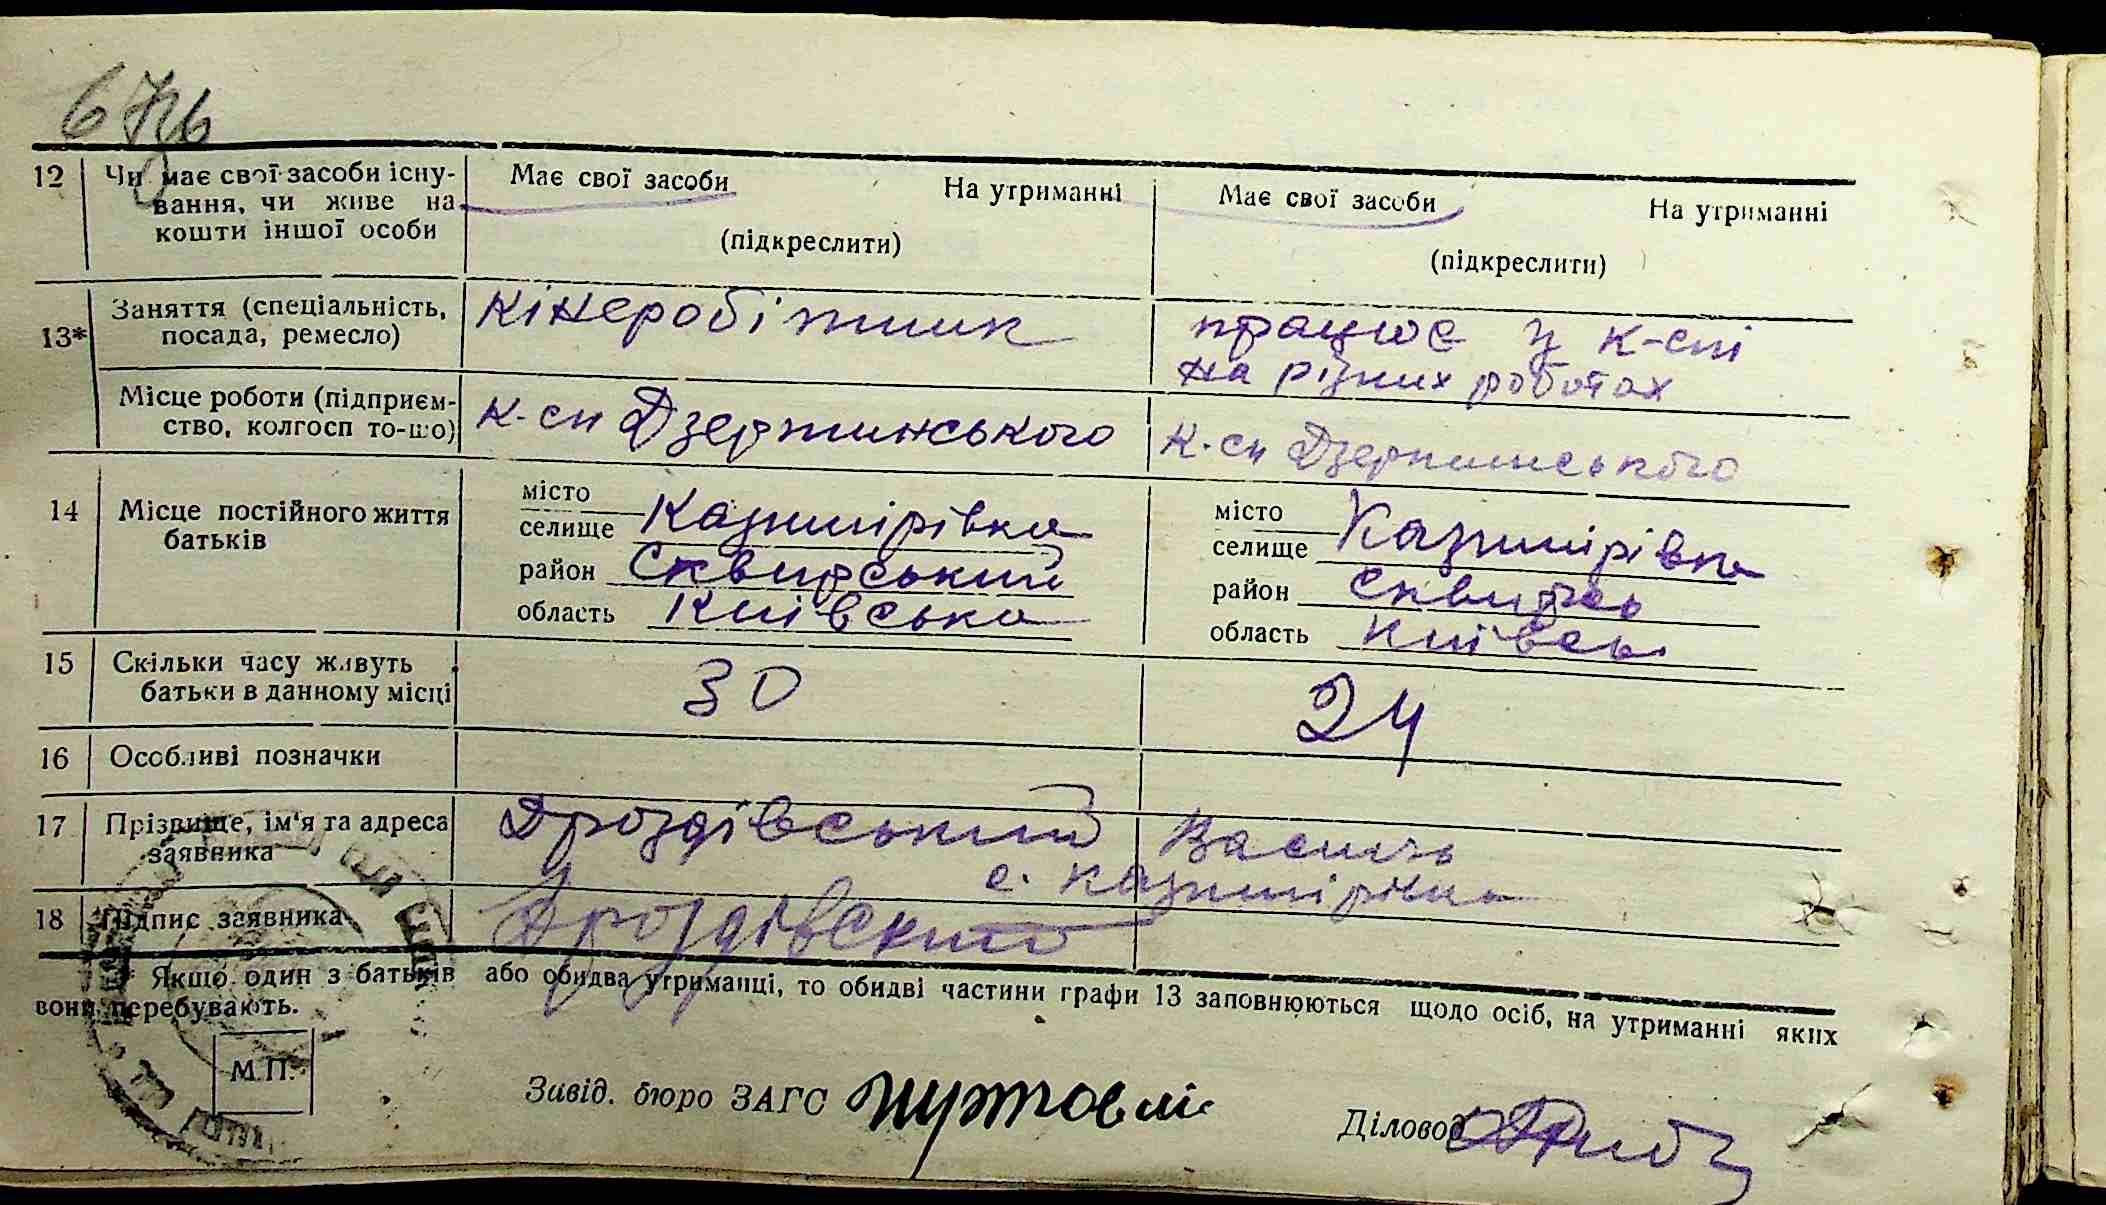 12 Чи має свої засоби існу- Має свої засоби На утриманні Має свої засоби На утриманні
вання, чи живе на
кошти іншої особи (підкреслити) (підкреслити)
13* Заняття (спеціальність, Кінеробітник працює у к-спі
посада, ремесло) на різних роботах
Місце роботи (підприєм- к-сп Дзержинського к-сп Дзержинського
ство, колгосп то-що)
14 Місце постійного життя місто місто
батьків селище Казимірівка селище Казимірівка
район Сквирський район Сквирсь
область Київська область Київсь
15 Скільки часу живуть 30 24
батьки в данному місці
16 Особливі позначки
17 Прізвище, ім'я та адреса Дроздівський Василь
заявника с. Казимірівка
18 Підпис заявника Дроздівский
* Якщо один з батьків або обидва утриманці, то обидві частини графи 13 заповнюються щодо осіб, на утриманні яких
вони перебувають.
М.П.
Завід. бюро ЗАГС
Діловод